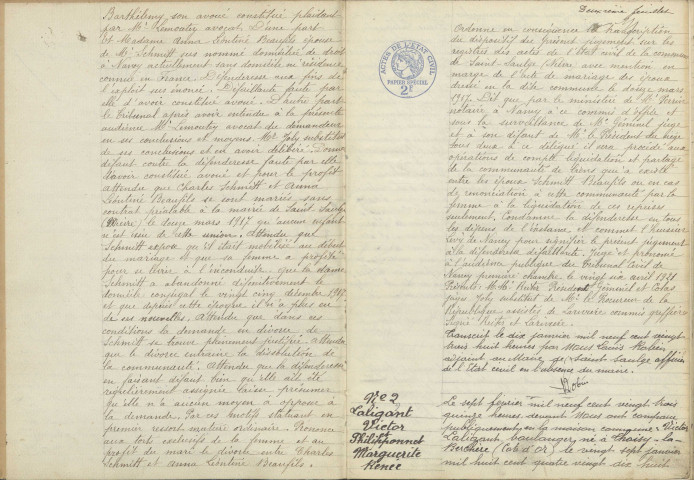 Barthélemy, son avoué constitué plaidant
par Mr Lemoutey avocat. D'une part
Et Madame Anna Léontine Beaufils épouse
de Mr Schmitt sus nommé domiciliée de droit
à Nancy actuellement sans domicile ni résidence
connus en France. Défenderesse aux fins de
l'exploit sus énoncé. Défaillante faute par
elle d'avoir constitué avoué. D'autre part
Le Tribunal après avoir entendu à la présente
audience Me Lemoutey avocat du demandeur
en ses conclusions et moyens. Mr Joly substitut
de ses conclusions et en avoir délibéré. Donne
défaut contre la défenderesse faute par elle
d'avoir constitué avoué et pour le profit
attendu que Charles Schmitt et Anna
Léontine Beaufils se sont mariés sans
contrat préalable à la mairie de Saint Saulge
(Nièvre) le douze mars 1917 qu'aucun enfant
n'est issu de cette union. Attendu que
Schmitt expose qu'il était mobilisé au début
du mariage et que sa femme a profité
pour se livrer à l'inconduite que la dame
Schmitt a abandonné définitivement le
domicile conjugal le vingt cinq décembre 1917
et que depuis cette époque il n'a plus eu
de ses nouvelles. Attendu que dans ces
conditions la demande en divorce de
Schmitt se trouve pleinement justifiée. Attendu
que le divorce entraine la dissolution de
la communauté. Attendu que la défenderesse
en faisant défaut bien qu'elle ait été
régulièrement assignée laisse présumer
qu'elle n'a aucun moyen à opposer à
la demande. Par ces motifs statuant en
premier ressort matière ordinaire. Prononce
aux torts exclusifs de la femme et au
profit du mari le divorce entre Charles
Schmitt et Anna Léontine Beaufils.
Deuxième feuillet
Ordonne en conséquence la transcription
du dispositif du présent jugement sur les
registres des actes de l'état civil de la commune
de Saint-Saulge (Nièvre) avec mention en
marge de l'acte de mariage des époux
dressé en la dite commune le douze mars
1917. Dit que par le ministère de Me
notaire à Nancy à ce commis d'office et
sous la surveillance de Mr Géminel juge
et à son défaut de Mr le Président du siège
tous deux à ce délégué il sera procédé aux
opérations de compte liquidation et partage
de la communauté de biens qui a existé
entre les époux Schmitt Beaufils ou en cas
de renonciation à cette communauté par la
femme à la liquidation de ces reprises
seulement. Condamne la défenderesse en tous
les dépens de l'instance et commet l'huissier
Lévy de Nancy pour signifier le présent jugement
à la défenderesse défaillante. Jugé et prononcé
à l'audience publique du Tribunal Civil de
Nancy première chambre le vingt six avril 1921
Présents: MM. Président, Géminel et Colas
juges Joly substitut de Mr le Procureur de la
République assistés de commis greffier
Signé et
Transcrit le dix janvier mil neuf cent vingt
trois huit heures par Nous Louis
adjoint au Maire de Saint-Saulge officier
de l'Etat civil en l'absence du maire.
ACTES DE L'ETAT CIVIL
PAPIER SPÉCIAL
2F
No 2
Laligant
Victor
Philipponnet
Marguerite
Renée
Le sept février mil neuf cent vingt trois
quinze heures devant Nous ont comparu
publiquement en la maison commune Victor
Laligant boulanger, né à Thoisy-la-
Berchère (Côte d'Or) le vingt sept janvier
mil huit cent quatre vingt dix huit